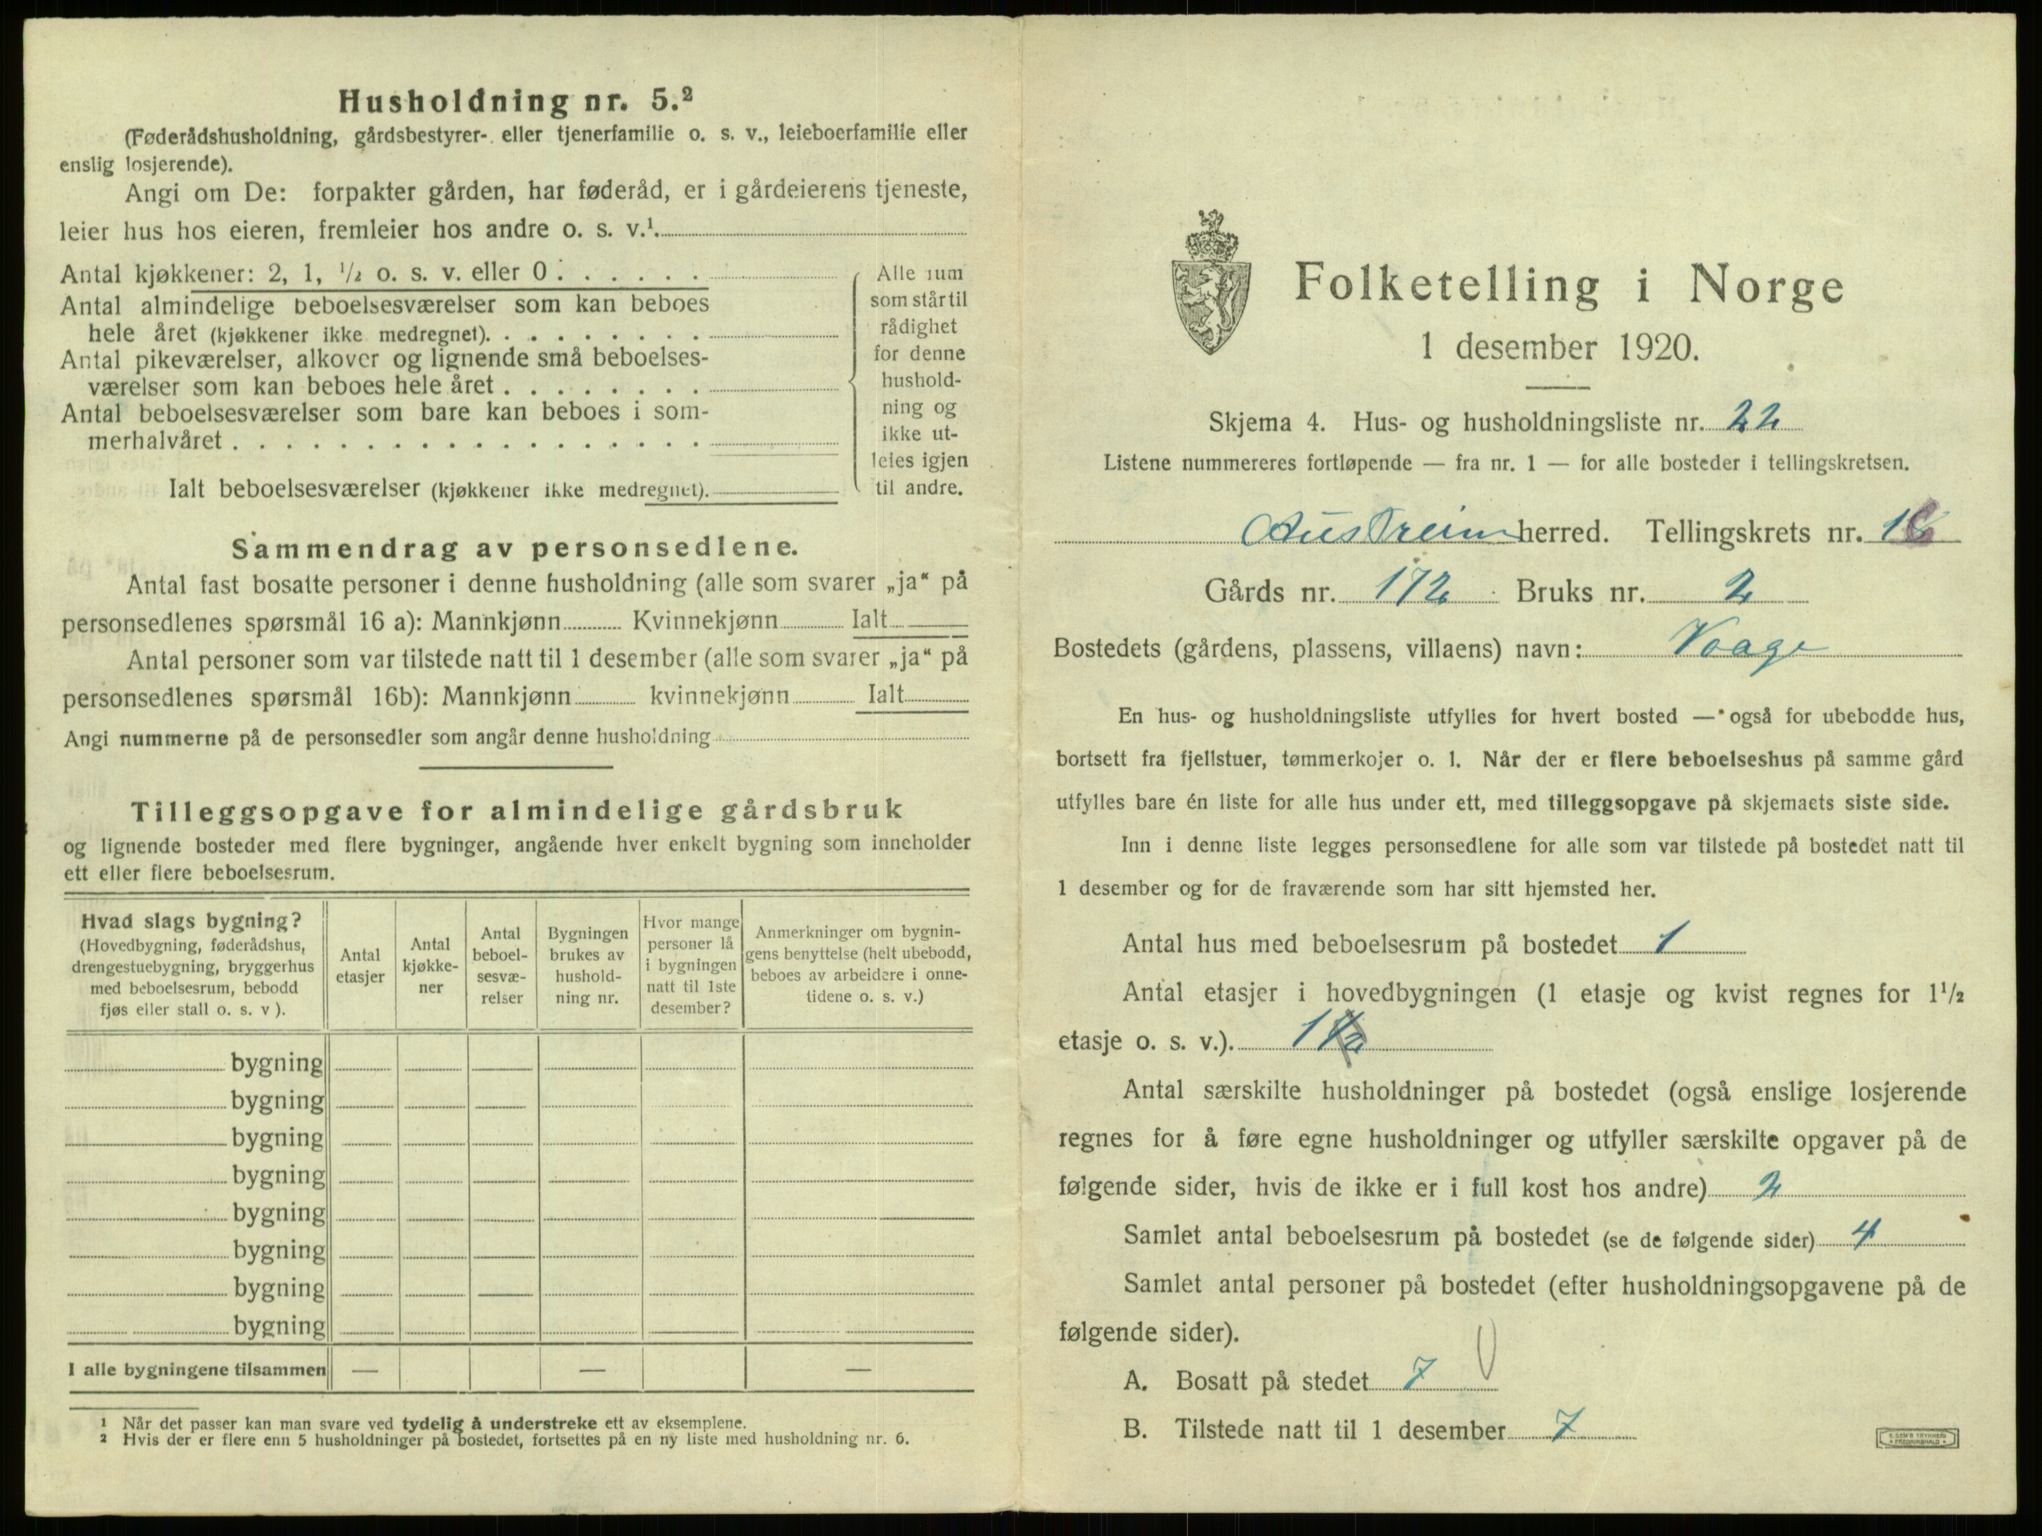 Husholdning nr. 5.²
(Føderådshusholdning, gårdsbestyrer- eller tjenerfamilie o. s. v., leieboerfamilie eller
enslig losjerende).
Angi om De: forpakter gården, har føderåd, er i gårdeierens tjeneste,
leier hus hos eieren, fremleier hos andre o. s. v.¹
Antal kjøkkener: 2, 1, ½ o. s. v. eller 0
Antal almindelige beboelsesværelser som kan beboes
hele året (kjøkkener ikke medregnet).
Antal pikeværelser, alkover og lignende små beboelses-
værelser som kan beboes hele året
Antal beboelsesværelser som bare kan beboes i som-
merhalvåret
Ialt beboelsesværelser (kjøkkener ikke medregnet).
Alle rum
som står til
rådighet
for denne
hushold-
ning og
ikke ut-
leies igjen
til andre.
Sammendrag av personsedlene.
Antal fast bosatte personer i denne husholdning (alle som svarer „ja“ på
personsedlenes spørsmål 16 a): Mannkjønn Kvinnekjønn Ialt
Antal personer som var tilstede natt til 1 desember (alle som svarer „ja“ på
personsedlenes spørsmål 16b): Mannkjønn kvinnekjønn Ialt
Angi nummerne på de personsedler som angår denne husholdning
Tilleggsopgave for almindelige gårdsbruk
og lignende bosteder med flere bygninger, angående hver enkelt bygning som inneholder
ett eller flere beboelsesrum.
Hvad slags bygning?
(Hovedbygning, føderådshus,
drengestuebygning, bryggerhus
med beboelsesrum, bebodd
fjøs eller stall o. s. v ).
Antal
etasjer
Antal
kjøkke-
ner
Antal
beboel-
sesvæ-
relser
Bygningen
brukes av
hushold-
ning nr.
Hvor mange
personer lå
i bygningen
natt til 1ste
desember?
Anmerkninger om bygnin-
gens benyttelse (helt ubebodd,
beboes av arbeidere i onne-
tidene o. s. v.)
bygning
bygning
bygning
bygning
bygning
bygning
bygning
bygning
I alle bygningene tilsammen — — —
¹ Når det passer kan man svare ved tydelig å understreke ett av eksemplene.
² Hvis der er flere enn 5 husholdninger på bostedet, fortsettes på en ny liste med husholdning nr. 6.
Folketelling i Norge
1 desember 1920.
Skjema 4. Hus- og husholdningsliste nr. 22
Listene nummereres fortløpende — fra nr. 1 — for alle bosteder i tellingskretsen.
Austreim herred. Tellingskrets nr.
Gårds nr. 172 Bruks nr. 2
Bostedets (gårdens, plassens, villaens) navn: Vaage
En hus- og husholdningsliste utfylles for hvert bosted — også for ubebodde hus,
bortsett fra fjellstuer, tømmerkojer o. l. Når der er flere beboelseshus på samme gård
utfylles bare én liste for alle hus under ett, med tilleggsopgave på skjemaets siste side.
Inn i denne liste legges personsedlene for alle som var tilstede på bostedet natt til
1 desember og for de fraværende som har sitt hjemsted her.
Antal hus med beboelsesrum på bostedet 1
Antal etasjer i hovedbygningen (1 etasje og kvist regnes for 1½
etasje o. s. v.). 1½
Antal særskilte husholdninger på bostedet (også enslige losjerende
regnes for å føre egne husholdninger og utfyller særskilte opgaver på de
følgende sider, hvis de ikke er i full kost hos andre) 2
Samlet antal beboelsesrum på bostedet (se de følgende sider) 4
Samlet antal personer på bostedet (efter husholdningsopgavene på de
følgende sider).
A. Bosatt på stedet 7
B. Tilstede natt til 1 desember 7